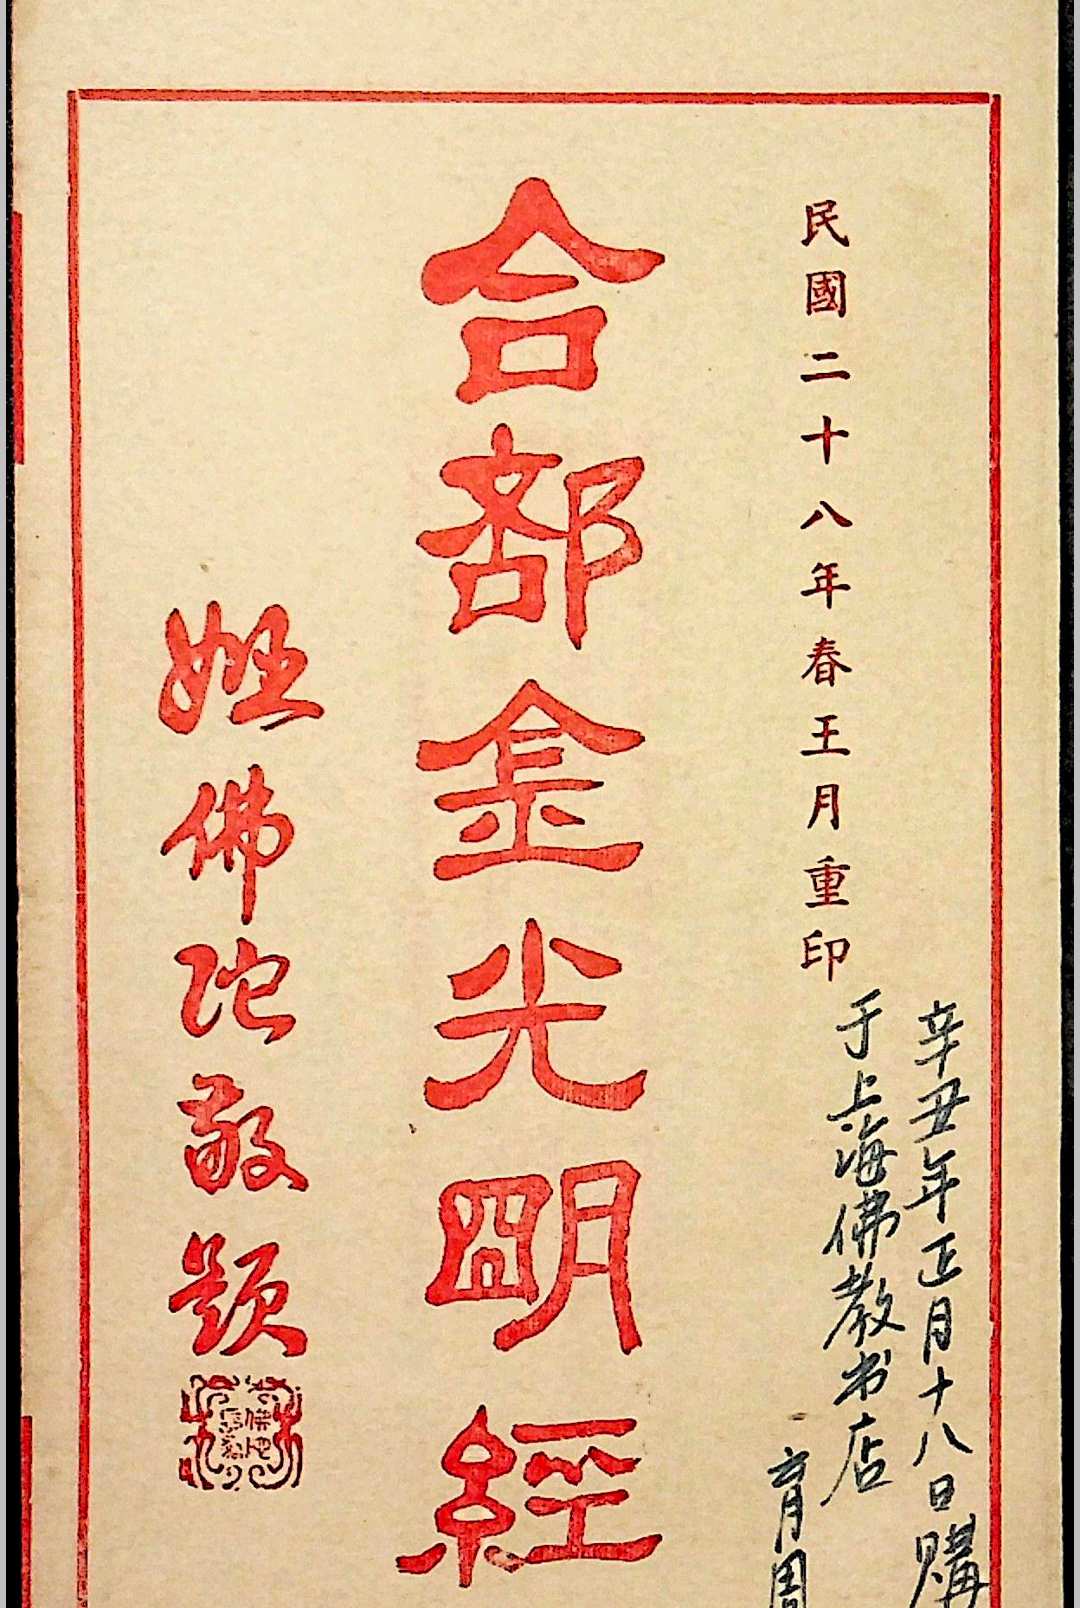 民國二十八年春王月重印
辛丑年正月十八日購
于上海佛教书店
育周
合部金光明經
姬佛陀敬題